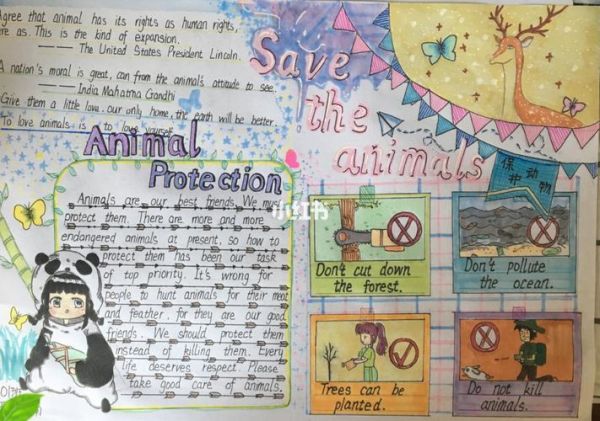 Agree that animal has its rights as human rights,
are as. This is the kind of expansion.
—— The United States President Lincoln.
A nation's moral is great, can from the animal's attitude to see.
—— India Mahatma Gandhi
Give them a little love, our only home, the earth will be better.
To love animals is to love yourself.
Animal
Protection
Animals are our best friends. We must
protect them. There are more and more
endangered animals at present, so how to
protect them has been our task
of top priority. It's wrong for
people to hunt animals for their meat
and feather, for they are our good
friends. We should protect them
instead of killing them. Every
life deserves respect. Please
take good care of animals.
Save
the
animals
保护动物
Don't cut down
the forest.
Don't pollute
the ocean.
Trees can be
planted.
Do not kill
animals.
小红书